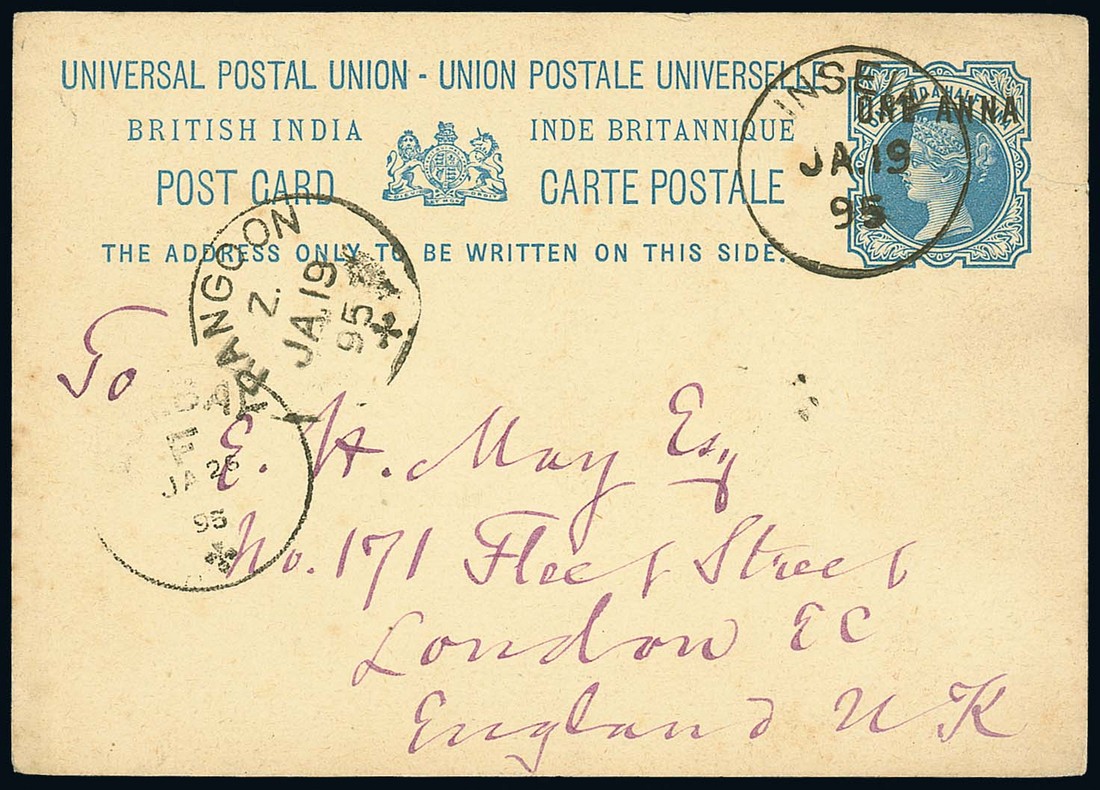 UNIVERSAL POSTAL UNION - UNION POSTALE UNIVERSELLE
BRITISH INDIA INDE BRITANNIQUE
POST CARD CARTE POSTALE
THE ADDRESS ONLY TO BE WRITTEN ON THIS SIDE.
ONE ANNA
INSEIN
JA.19
95
RANGOON
Z.
JA.19
95
JA 26
95
To
E. H. May Esq
No. 171 Fleet Street
London EC
England UK